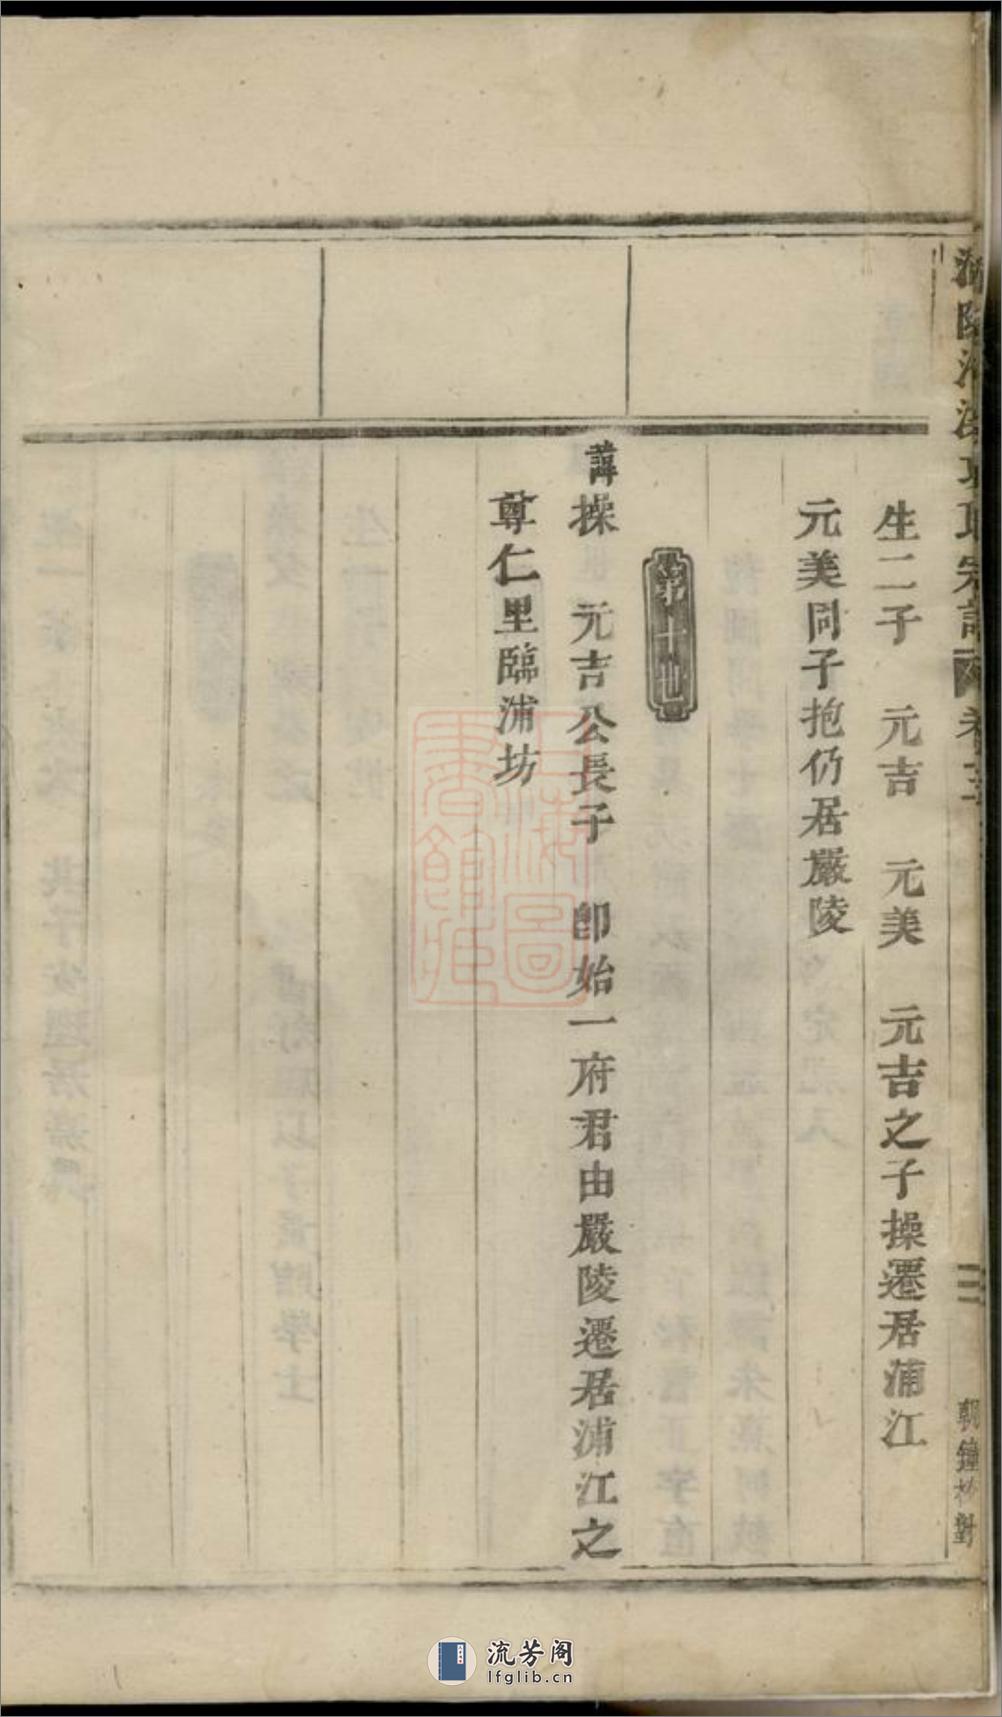 宗譜
卷
朝鐘校對
生二子　元吉　元美　元吉之子操遷居浦江
元美同子抱仍居嚴陵
第十世
諱操　元吉公長子　卽始一府君由嚴陵遷居浦江之
尊仁里臨浦坊
上海圖書館藏
流芳阁
lfglib.cn